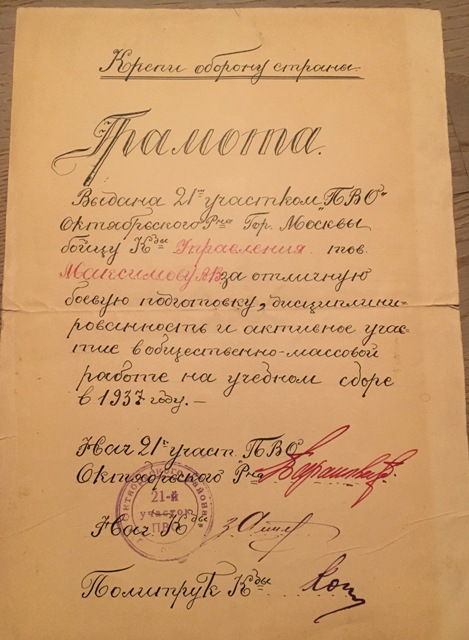 Крепи оборону страны.
Грамота.
Выдана 21м участком "ПВО"
Октябрьского Р-на Гор. Москвы
бойцу К-ды Управления тов.
Максимову за отличную
боевую подготовку, дисциплини-
рованность и активное учас-
тие в общественно-массовой
работе на учебном сборе
в 1937 году. —
Нач. 21 участ. ПВО
Октябрьского Р-на
21-й
участок
ПВО
Нач. К-ды
Политрук К-ды